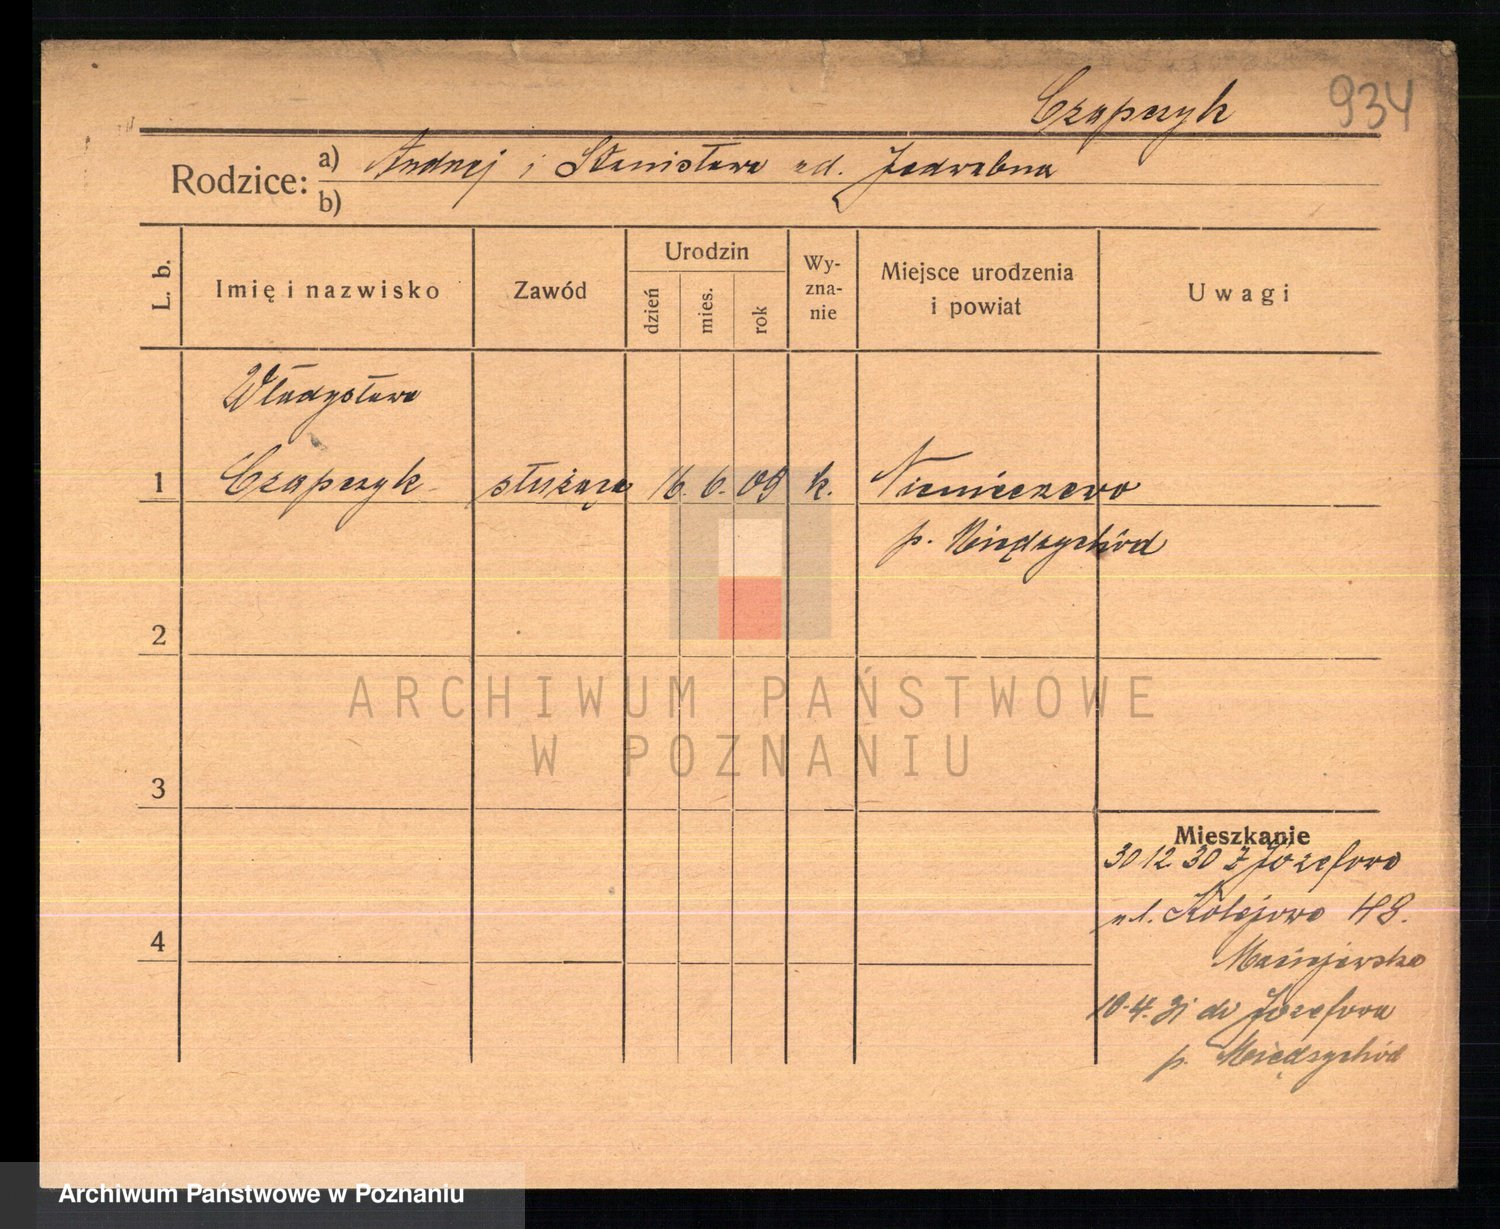 Czapczyk 934
Rodzice: a) Andrzej i Stanisława ud. Jedwabna
b)
L. b. Imię i nazwisko Zawód Urodzin dzień mies. rok Wy-zna-nie Miejsce urodzenia i powiat Uwagi
Władysława
1 Czapczyk służąca 16. 6. 09 k. Niemieczewo
p. Międzychód
2
ARCHIWUM PAŃSTWOWE
W POZNANIU
3
Mieszkanie
30 12 30 z Józefowo
ul. Kolejowa 48.
4
Maciejewska
10.4.31 do Józefowa
p. Międzychód
Archiwum Państwowe w Poznaniu